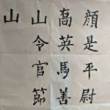 顏是平尉
高英馬善
山令官節
山